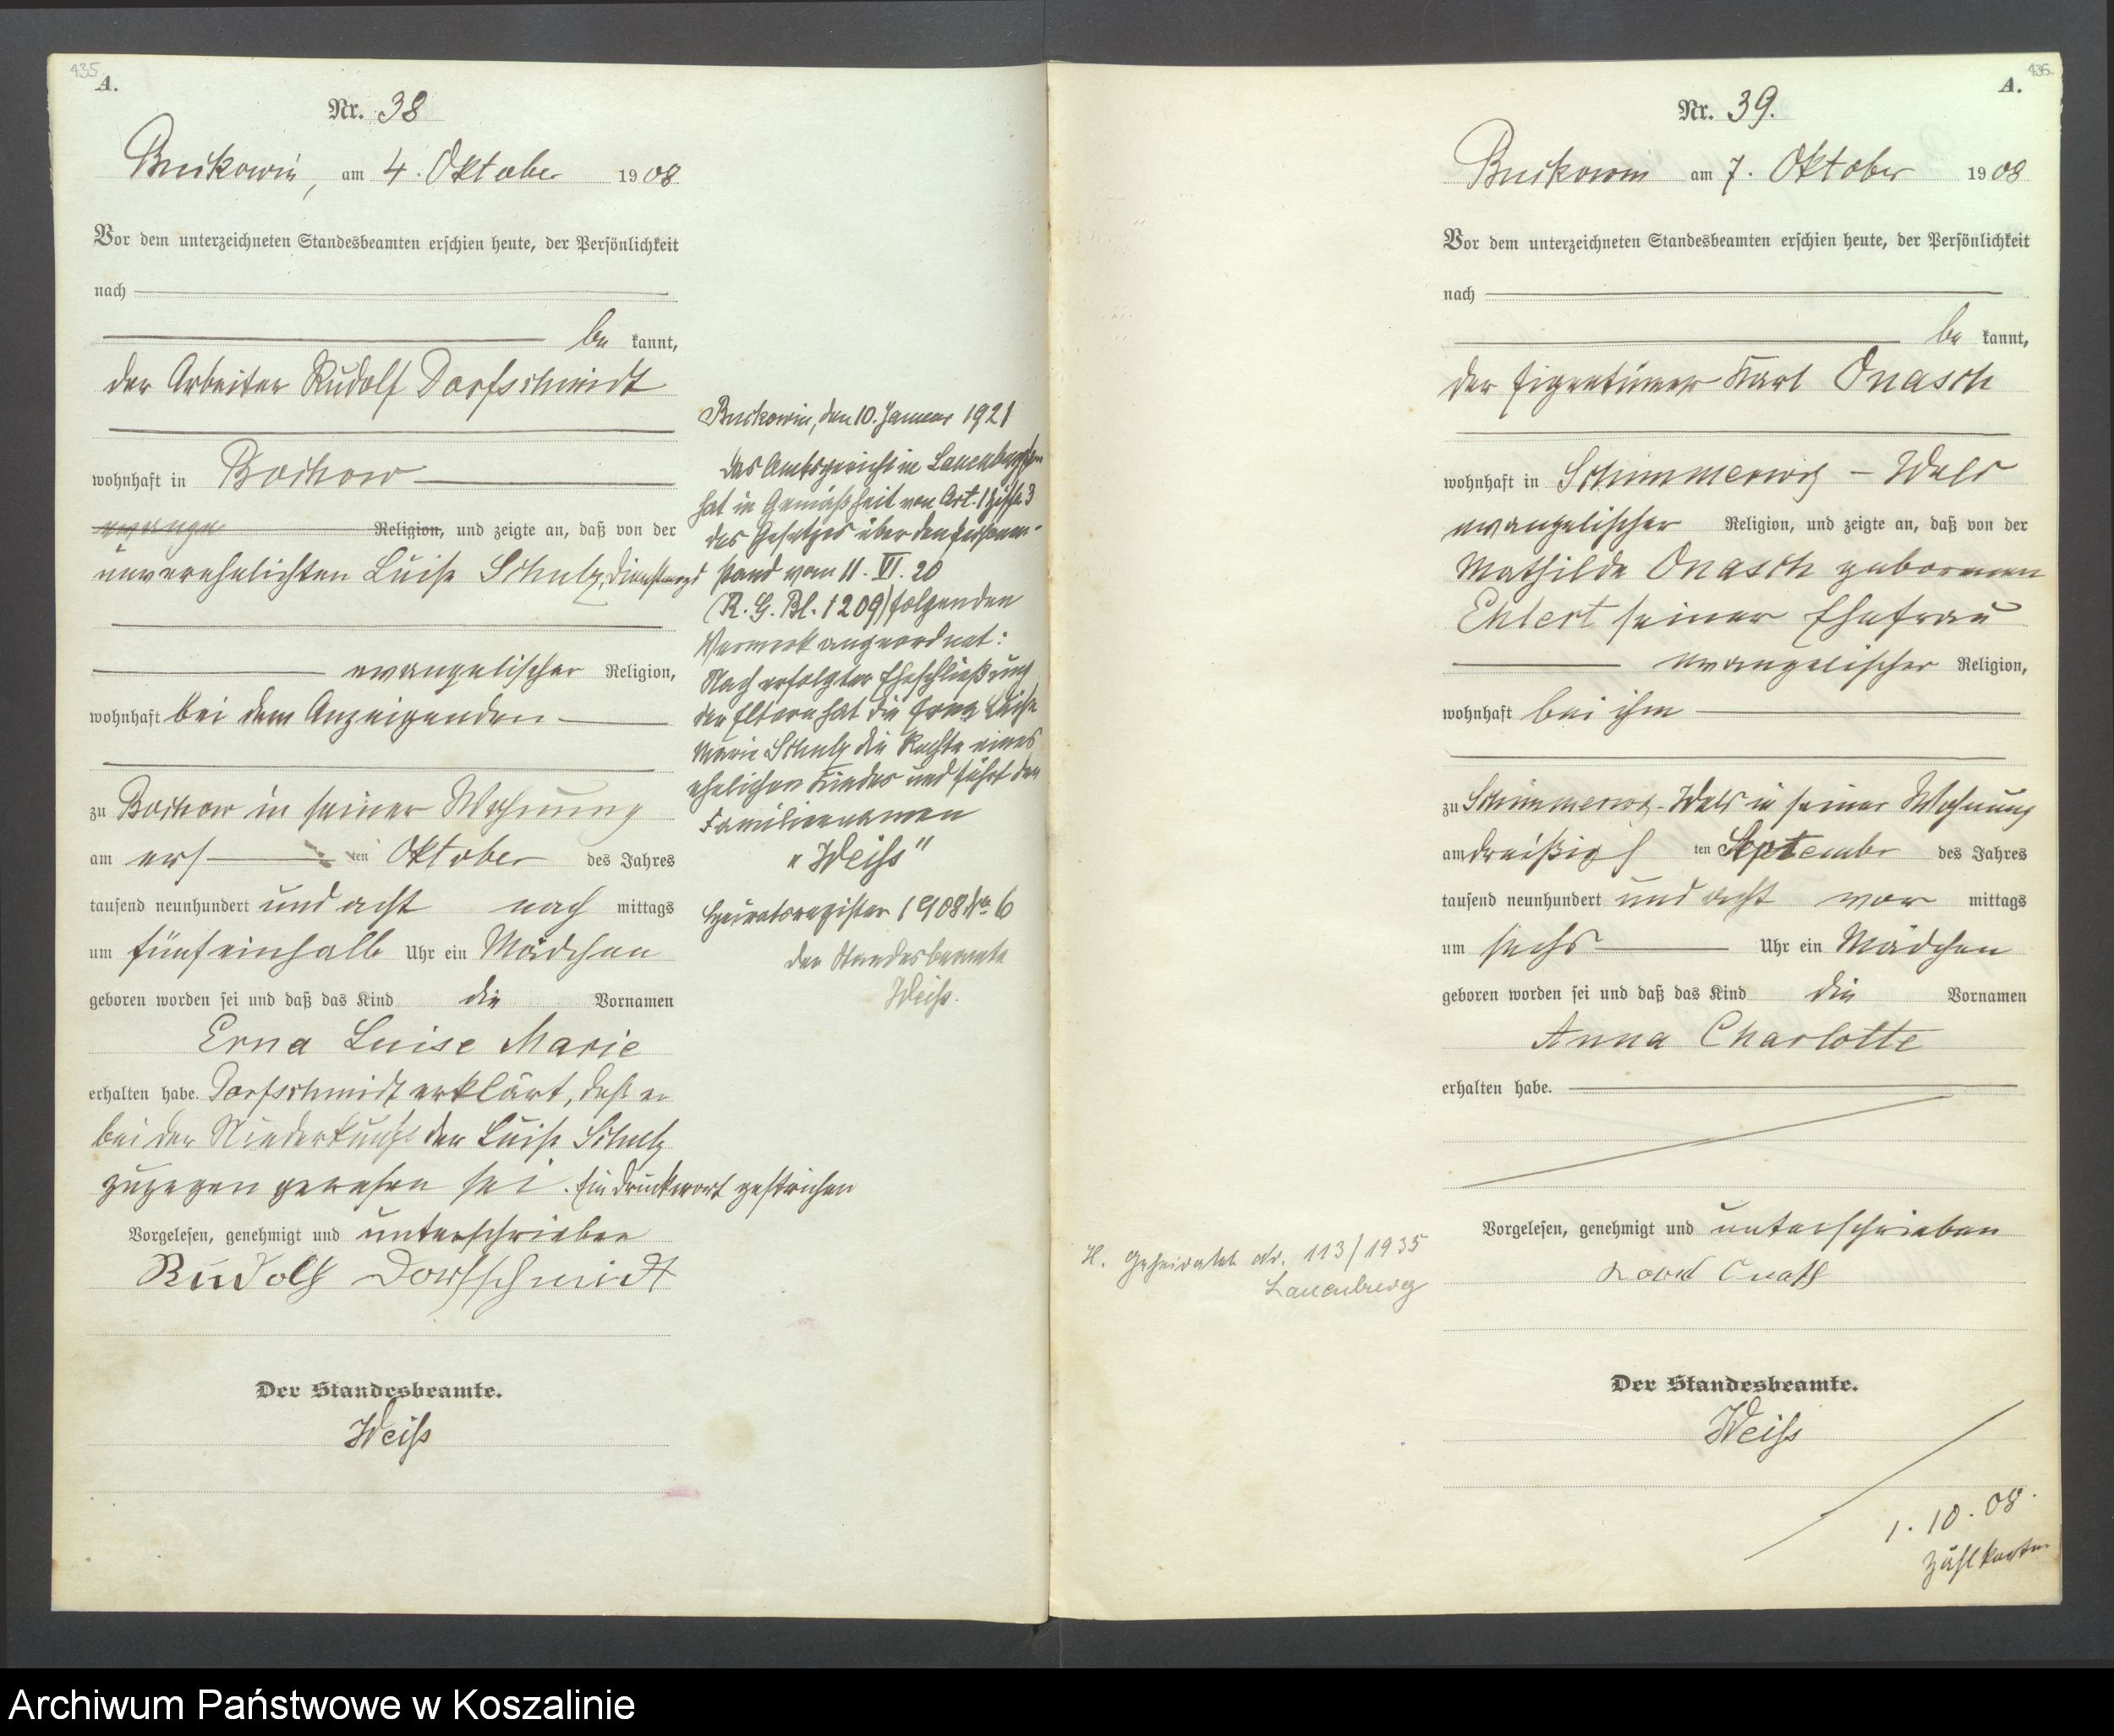 435.
A.
Nr. 38
Buckowin, am 4. Oktober 1908
Vor dem unterzeichneten Standesbeamten erschien heute, der Persönlichkeit
nach
be kannt,
der Arbeiter Rudolf Dorfschmidt
wohnhaft in Bochow
evange Religion, und zeigte an, daß von der
unverehelichten Luise Schulz, Dienstmagd
evangelischer Religion,
wohnhaft bei dem Anzeigenden
zu Bochow in seiner Wohnung
am ersten Oktober des Jahres
tausend neunhundert und acht nach mittags
um fünfeinhalb Uhr ein Mädchen
geboren worden sei und daß das Kind die Vornamen
Erna Luise Marie
erhalten habe. Dorfschmidt erklärt, daß er
bei der Niederkunft der Luise Schulz
zugegen gewesen sei. Ein Druckwort gestrichen
Vorgelesen, genehmigt und unterschrieben
Rudolf Dorfschmidt
Der Standesbeamte.
Weiß
Buckowin, den 10. Januar 1921
Das Amtsgericht in Lauenburg/Pom
hat in Gemäßheit von Art. 1 Ziffer 3
des Gesetzes über den Personen-
stand vom 11. VI. 20
(R. G. Bl. 1209) folgenden
Vermerk angeordnet:
Nach erfolgter Eheschließung
der Eltern hat die Erna Luise
Marie Schulz die Rechte eines
ehelichen Kindes und führt den
Familiennamen
"Weiß"
Heiratsregister 1908 No 6
Der Standesbeamte
Weiß.
436.
A.
Nr. 39.
Buckowin am 7. Oktober 1908
Vor dem unterzeichneten Standesbeamten erschien heute, der Persönlichkeit
nach
be kannt,
der Eigentümer Karl Onasch
wohnhaft in Schimmerwitz - Wald
evangelischer Religion, und zeigte an, daß von der
Mathilde Onasch geborenen
Ehlert seiner Ehefrau
evangelischer Religion,
wohnhaft bei ihm
zu Schimmerwitz-Wald in seiner Wohnung
am dreißigsten September des Jahres
tausend neunhundert und acht vor mittags
um sechs Uhr ein Mädchen
geboren worden sei und daß das Kind die Vornamen
Anna Charlotte
erhalten habe.
Vorgelesen, genehmigt und unterschrieben
Karl Onasch
Der Standesbeamte.
Weiß
H. geheiratet Nr. 113/1935
Lauenburg
1. 10. 08.
Zählkarten
Archiwum Państwowe w Koszalinie